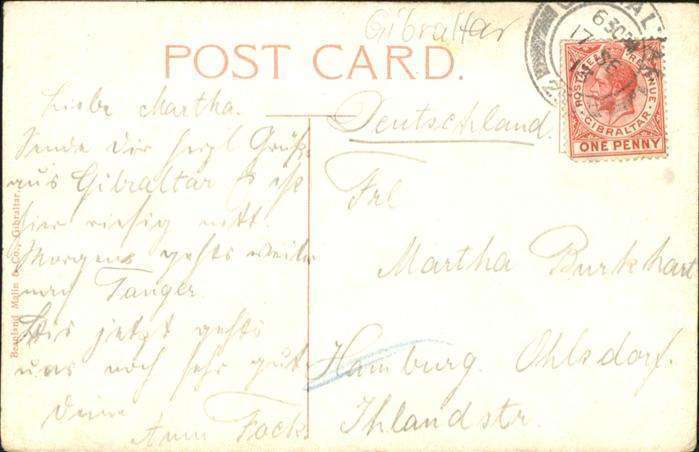 Gibraltar
POST CARD.
Liebe Martha.
Sende dir herzl Grüße
aus Gibraltar Es ist
hier riesig nett.
Morgen gehts weiter
nach Tanger.
Bis jetzt gehts
uns noch sehr gut
Deine
Fock
Deutschland.
Frl
Martha Burkhart
Hamburg. Ohlsdorf.
Ihlandstr.
POSTAGE & REVENUE
GIBRALTAR
ONE PENNY
630PM
17
Beanland Malin & Co., Gibraltar.